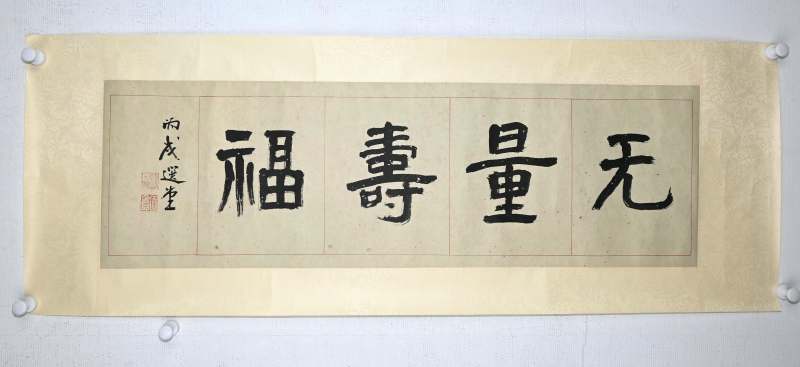 无量壽福
丙戌選堂